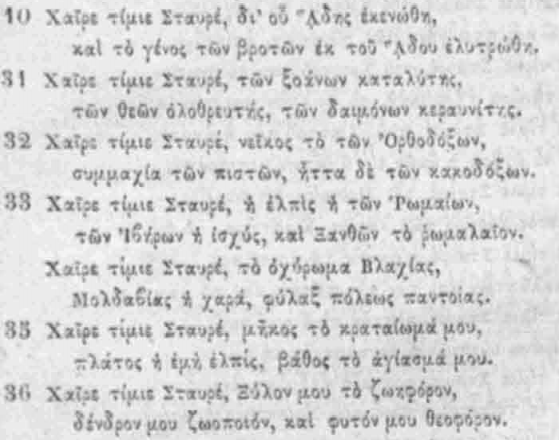 10 Χαῖρε τίμιε Σταυρέ, δι' οὗ Ἅδης ἐκενώθη,
καὶ τὸ γένος τῶν βροτῶν ἐκ τοῦ Ἅδου ἐλυτρώθη.
31 Χαῖρε τίμιε Σταυρέ, τῶν ξοάνων καταλύτης,
τῶν θεῶν ὀλοθρευτής, τῶν δαιμόνων κεραυνίτης.
32 Χαῖρε τίμιε Σταυρέ, νεῖκος τὸ τῶν Ὀρθοδόξων,
συμμαχία τῶν πιστῶν, ἧττα δὲ τῶν κακοδόξων.
33 Χαῖρε τίμιε Σταυρέ, ἡ ἐλπὶς ἡ τῶν Ῥωμαίων,
τῶν Ἰβήρων ἡ ἰσχύς, καὶ Ξανθῶν τὸ ῥωμαλαῖον.
Χαῖρε τίμιε Σταυρέ, τὸ ὀχύρωμα Βλαχίας,
Μολδαβίας ἡ χαρά, φύλαξ πόλεως παντοίας.
35 Χαῖρε τίμιε Σταυρέ, μῆκος τὸ κραταίωμά μου,
πλάτος ἡ ἐμὴ ἐλπίς, βάθος τὸ ἁγίασμά μου.
36 Χαῖρε τίμιε Σταυρέ, Ξύλον μου τὸ ζωηφόρον,
δένδρον μου ζωοποιόν, καὶ φυτόν μου θεοφόρον.